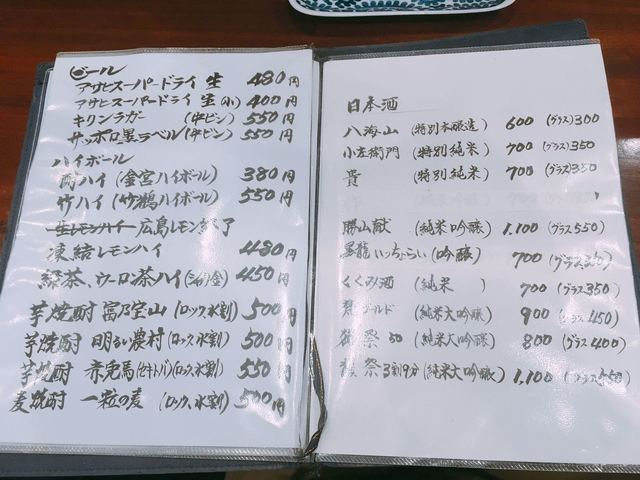 ビール
アサヒスーパードライ 生 480円
アサヒスーパードライ 生(小) 400円
キリンラガー (中ビン) 550円
サッポロ黒ラベル(中ビン) 550円
ハイボール
酎ハイ(金宮ハイボール) 380円
竹ハイ(竹鶴ハイボール) 550円
生レモンハイ 広島レモン終了
凍結レモンハイ 480円
緑茶、ウーロン茶ハイ 450円
芋焼酎 富乃宝山 (ロック、水割) 500円
芋焼酎 明るい農村(ロック、水割) 500円
芋焼酎 赤兎馬(セキトバ)(ロック、水割) 550円
麦焼酎 一粒の麦 (ロック、水割) 500円
日本酒
八海山 (特別本醸造) 600 (グラス)300
小左衛門 (特別純米) 700 (グラス)350
貴 (特別純米) 700 (グラス)350
勝山献 (純米吟醸) 1,100 (グラス550)
黒龍いっちょらい (吟醸) 700 (グラス350)
くくみ酒 (純米) 700 (グラス350)
梵ゴールド (純米大吟醸) 900 (グラス450)
獺祭 50 (純米大吟醸) 800 (グラス400)
獺祭 3割9分 (純米大吟醸) 1,100 (グラス550)